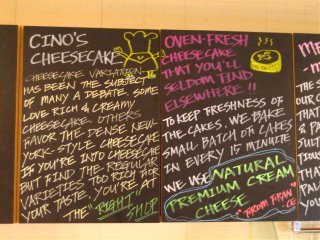 CINO'S
CHEESECAKE
CHEESECAKE VARIATION
HAS BEEN THE SUBJECT
OF MANY A DEBATE. SOME
LOVE RICH & CREAMY
CHEESECAKE. OTHERS
FAVOR THE DENSE NEW-
YORK-STYLE CHEESECAKE
IF YOU'RE INTO CHEESECAKE
BUT FIND THE REGULAR
VARIETIES TOO RICH FOR
YOUR TASTE, YOU'RE AT
THE "RIGHT"
SHOP
OVEN-FRESH
CHEESECAKE
THAT YOU'LL
SELDOM FIND
ELSEWHERE!!
TO KEEP FRESHNESS OF
THE CAKES, WE BAKE
SMALL BATCH OF CAKES
IN EVERY 15 MINUTE
WE USE NATURAL
PREMIUM CREAM
CHEESE "FROM FRAN
CE"